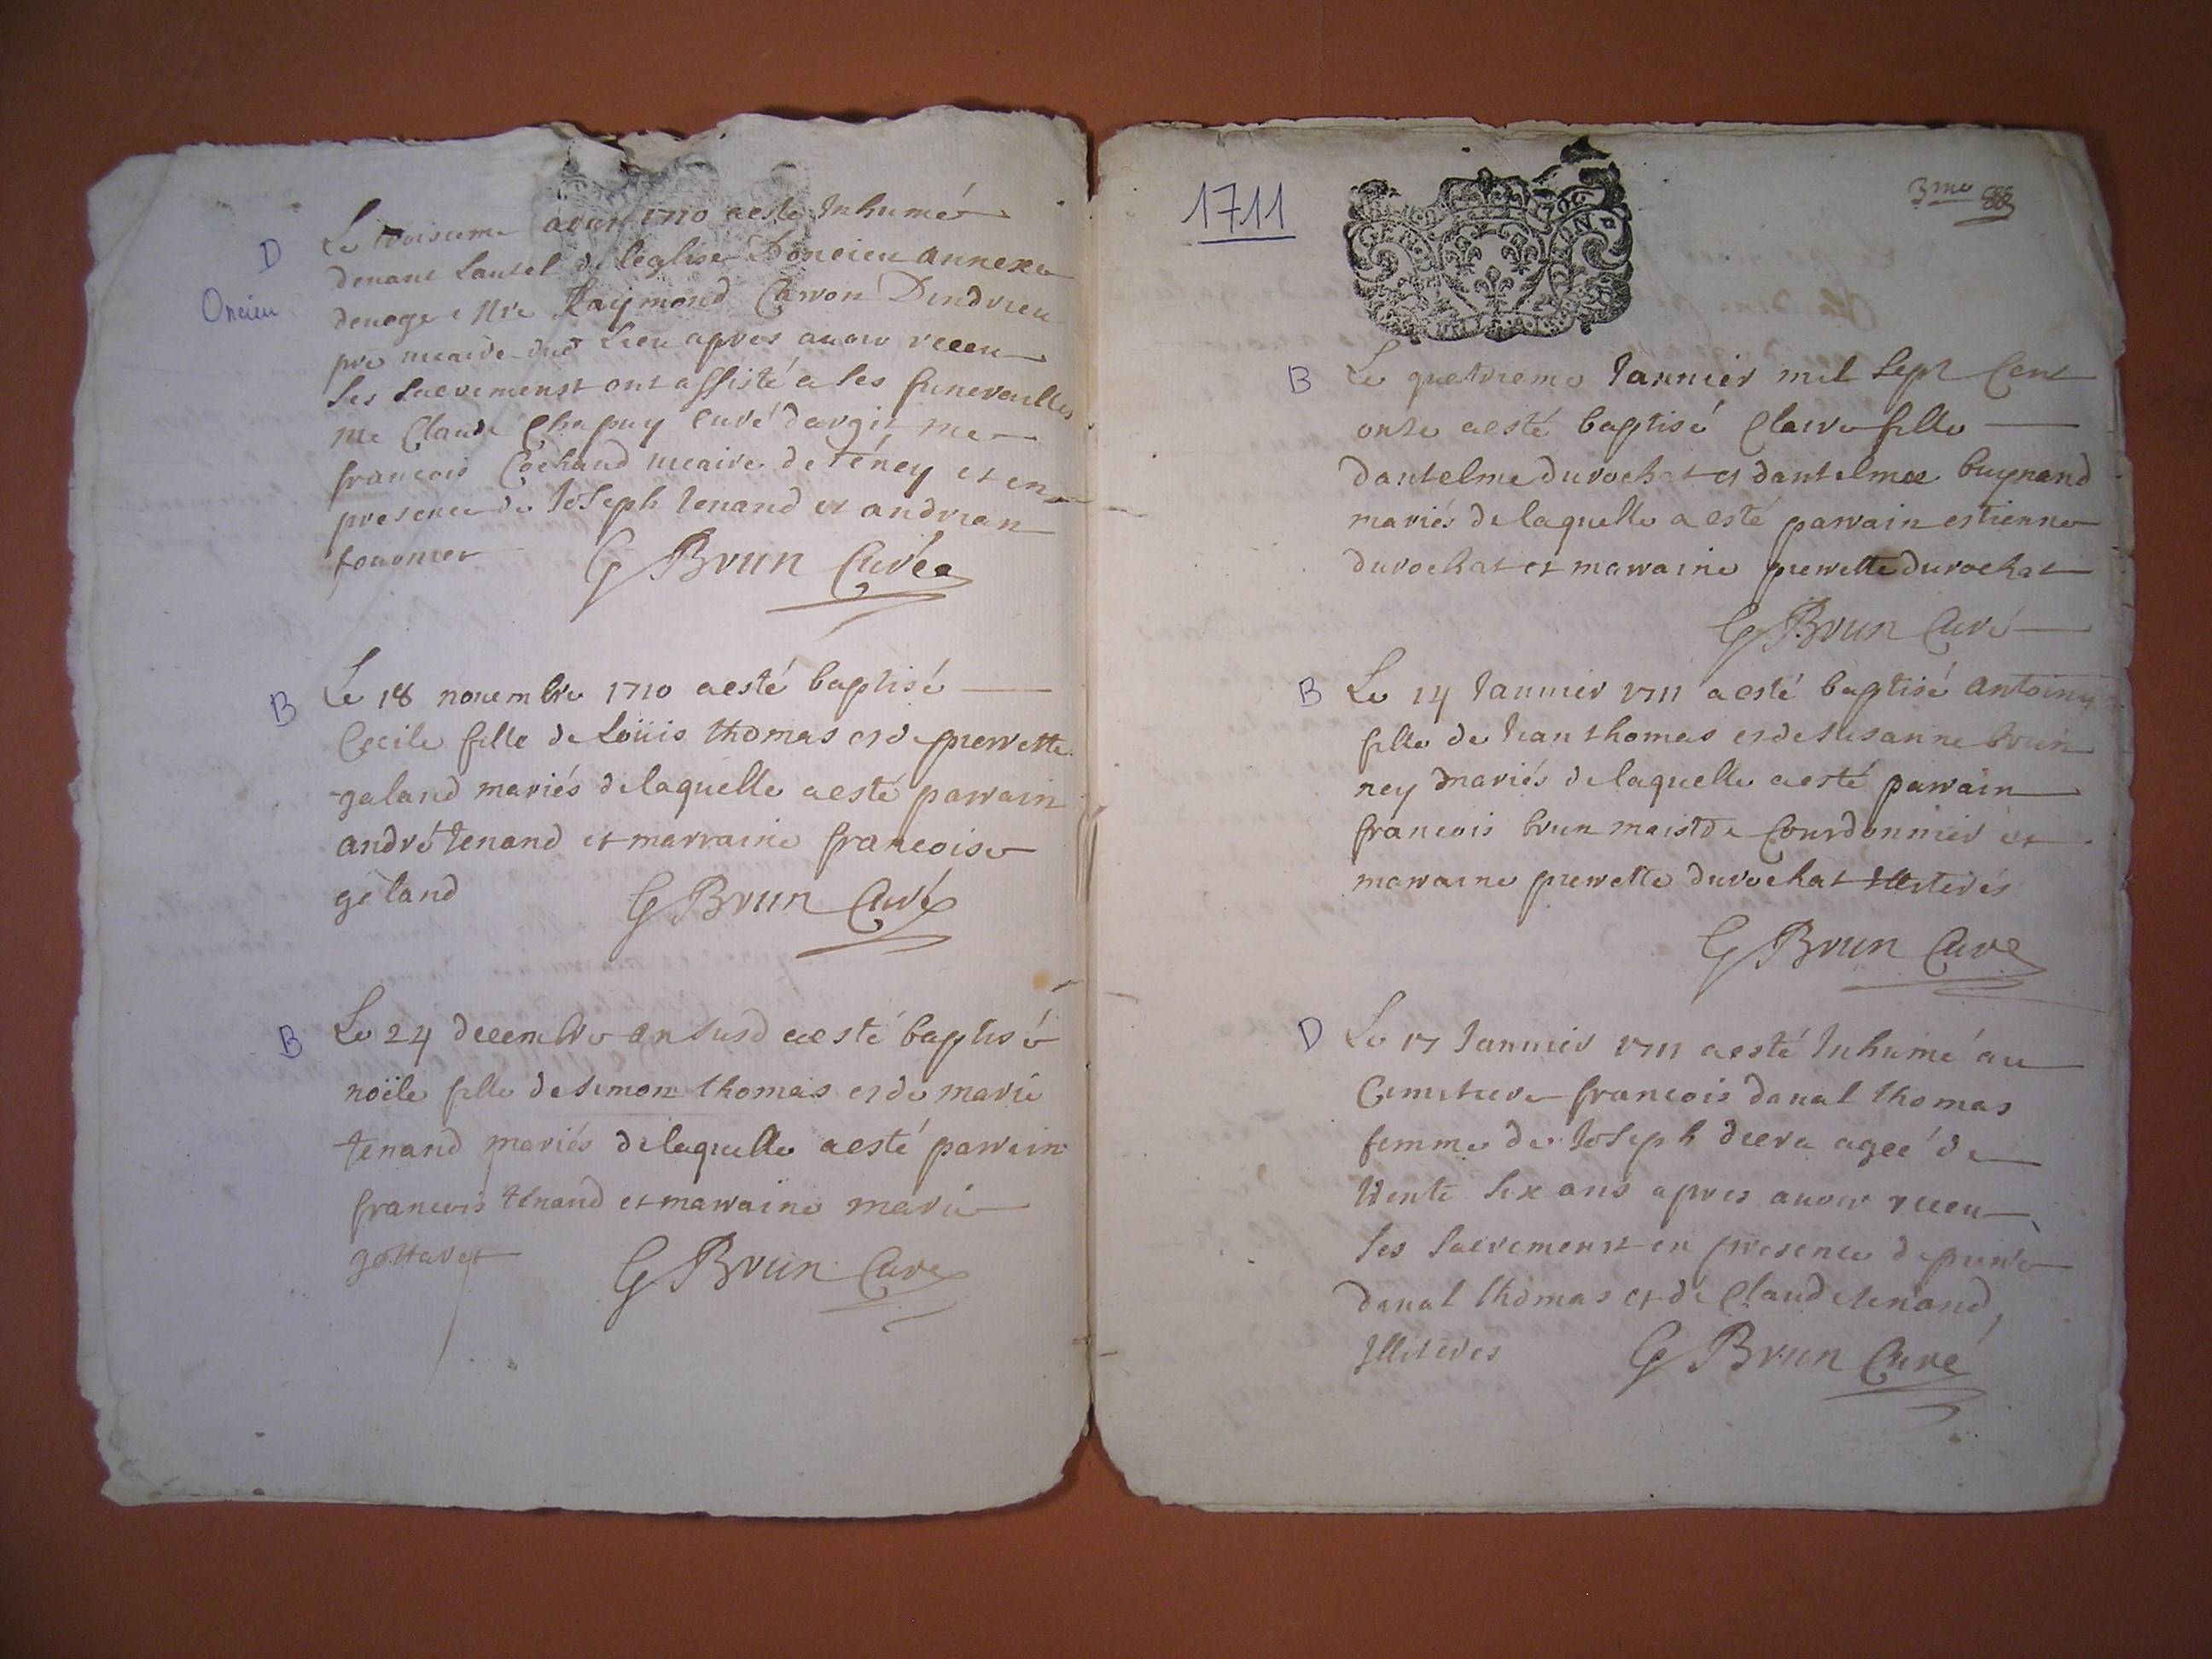 D
Oncieu
Le troisieme aoust 1710 a esté Inhumé
deuant Lautel de leglise Doncieu annexe
deuoge Mre Raymond Carron Dindrieu
pre uicaire dud Lieu apres auoir receu
Les Sacremenst ont assisté a ses funerailles
Me Claude Chapuy curé dargit me
francois Cochand uicaire de Téney et en
presence de Joseph tenand et andrean
G Brun Curé
B
Le 18 nouembre 1710 a esté baptisé
Cecile fille de Loüis thomas et de pierrette
galand mariés de laquelle a esté parrain
andré tenand et marraine francoise
galand
G Brun Curé
B
Le 24 decembre an susd a esté baptisé
noële fille de simon thomas et de marie
tenand mariés de laquelle a esté parrain
francois ténand et marraine marie
G Brun Curé
1711
3me
B
Le quatrieme Januier mil Sept Cent
onze a esté baptisé Claire fille
dantelme durochat et dantelmee buynand
mariés de laquelle a esté parrain estienne
durochat et marraine pierrette durochat
G Brun Curé
B
Le 14 Januier 1711 a esté baptisé antoine
fille de Jean thomas et de susanne brun
ney mariés de laquelle a esté parrain
francois brun maistre Courdonnier et
marraine pierrette durochat Illiterés
G Brun Curé
D
Le 17 Januier 1711 a esté Inhumé au
Cimitiere francois danal thomas
femme de Joseph decra ageé de
trente six ans apres auoir receu
les Sacremenst en presence de pierre
danal thomas et de Claude tenand,
Illiteres
G Brun Curé